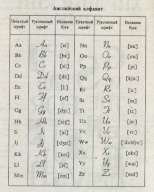 Английский алфавит
Печатный шрифт Рукописный шрифт Название букв Печатный шрифт Рукописный шрифт Название букв
Aa Aa [ei] Nn Nn [en]
Bb Bb [bi:] Oo Oo [ou]
Cc Cc [si:] Pp Pp [pi:]
Dd Dd [di:] Qq Qq [kju:]
Ee Ee [i:] Rr Rr
Ff Ff [ef] Ss Ss [es]
Gg Gg Tt Tt [ti:]
Hh Hh Uu Uu [ju:]
Ii Ii [ai] Vv Vv [vi:]
Jj Jj Ww Ww
Kk Kk [kei] Xx Xx [eks]
Ll Ll [el] Yy Yy [wai]
Mm Mm [em] Zz Zz [zed]